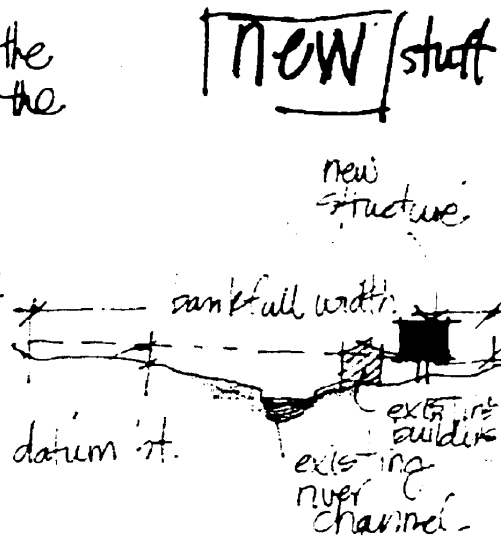 the
the
new stuff
new
structure
bankfull width
existing
building
datum pt.
existing
river
channel